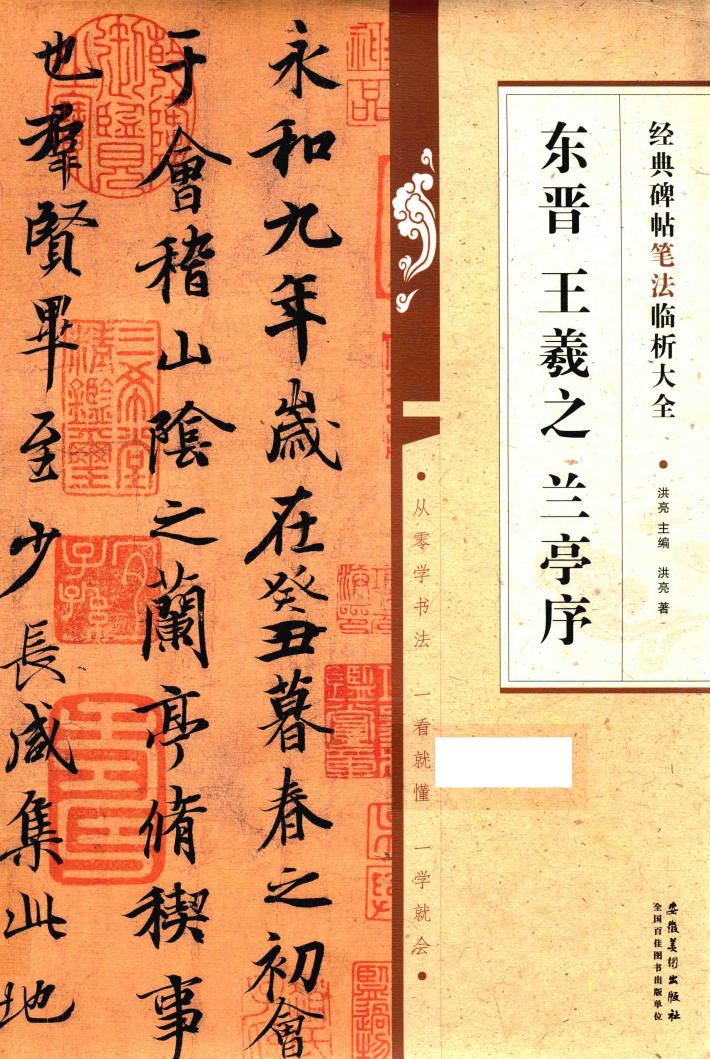 经典碑帖笔法临析大全
洪亮 主编 洪亮 著
东晋 王羲之 兰亭序
•从零学书法 一看就懂 一学就会•
安徽美术出版社
全国百佳图书出版单位
永和九年歲在癸丑暮春之初會
于會稽山陰之蘭亭脩稧事
也羣賢畢至少長咸集此地
三希堂
精鑑璽
宜子孫